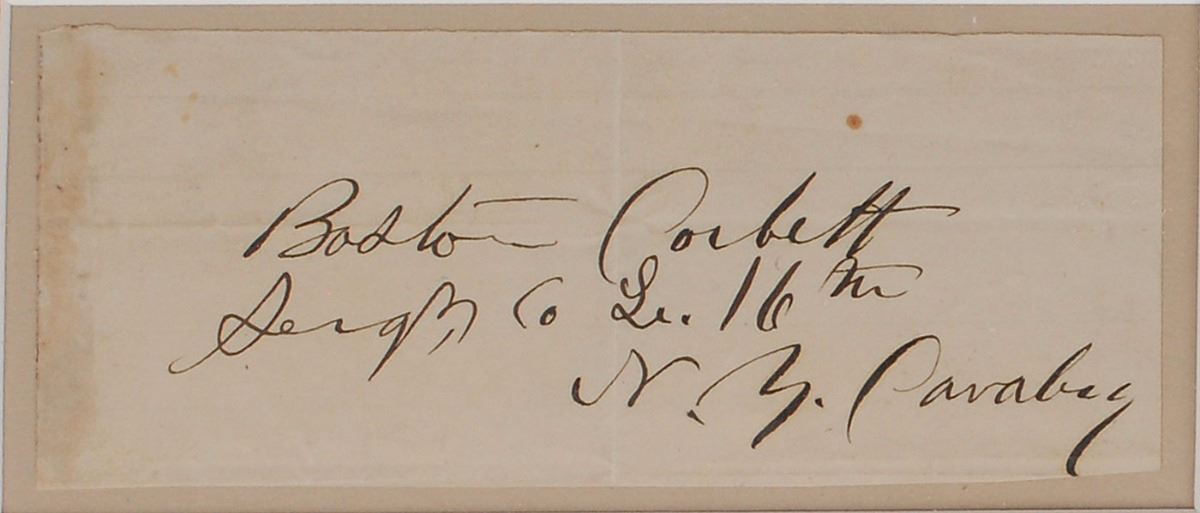 Boston Corbett
Sergt, Co L. 16th
N. Y. Cavalry